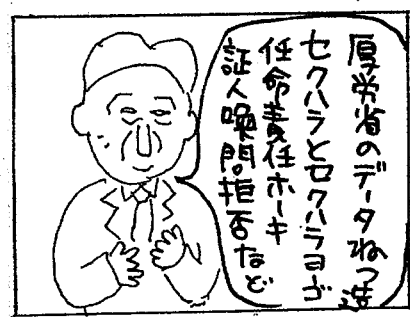 厚労省のデータねつ造
セクハラとセクハラヨゴ
任命責任ホーキ
証人喚問拒否など